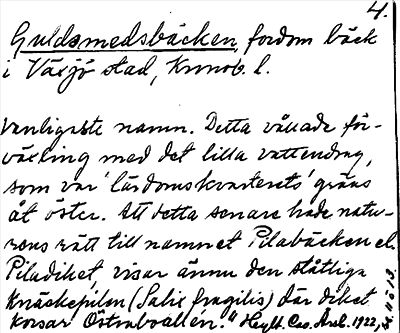 4.
Guldsmedsbäcken, fordom bäck
i Växjö stad, Kronob. l.
vanligaste namn. Detta vållade för-
växling med det lilla vattendrag,
som var 'lärdomskvarterets' gräns
åt öster. Att detta senare hade natu-
rens rätt till namnet Pilabäcken el.
Piladiket, visar ännu den ståtliga
knäckepilen (Salix fragilis) där diket
korsar Östrabvallen." Hylt. Cav. Årsb. 1922,